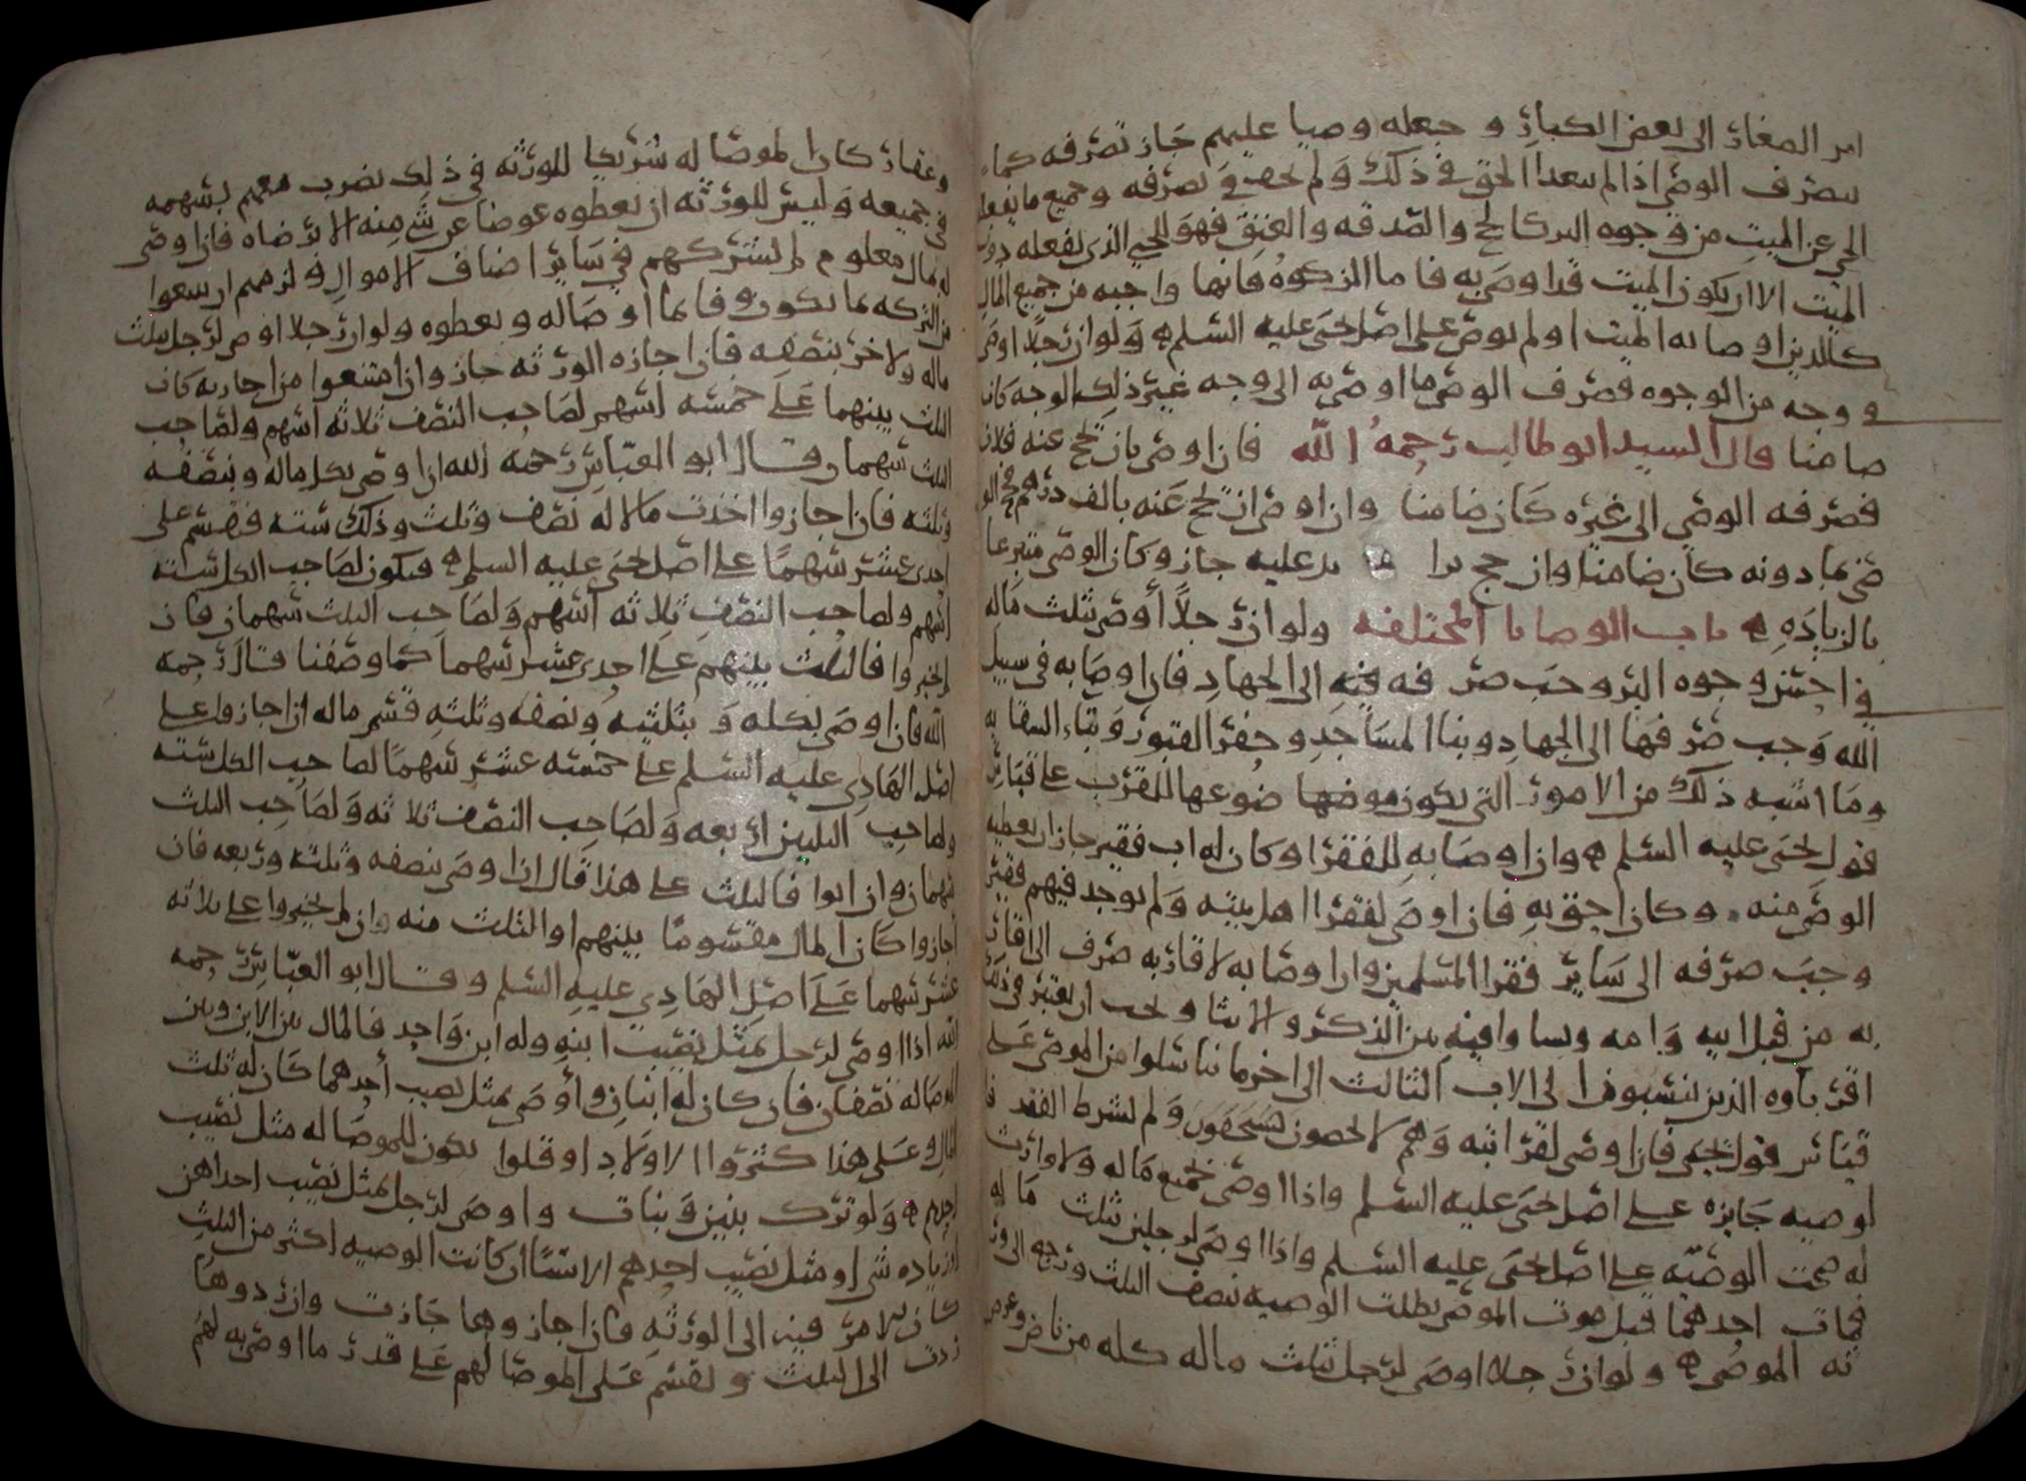 امر الصغار الى بعض الكبار و جعله وصيا عليهم جاز تصرفه كما
يتصرف الوصي اذا لم يتعدا الحق في ذلك ولم يحف في تصرفه وجميع ما يفعله
الحي عن الميت من وجوه البر كالحج والصدقه والعتق فهو للحي الذي يفعله دون
الميت الا ان يكون الميت قد اوصى به فاما الزكوه فانها واجبه من جميع المال
كالدين اوصا به الميت او لم يوص على اصل يحيى عليه السلم ولو ان رجلا اوصى
في وجه من الوجوه فصرف الوصي ما اوصي به الى وجه غير ذلك الوجه كان
ضامنا قال السيد ابو طالب رحمه الله فان اوصى بان يحج عنه فلان
فصرفه الوصي الى غيره كان ضامنا وان اوصى ان يحج عنه بالف درهم فحج الو
صي بما دونه كان ضامنا وان حجج بزا يد عليه جاز وكان الوصي متبرعا
بالزياده باب الوصايا المختلفه ولو ان رجلا أوصى بثلث ماله
في احسن وجوه البر وجب صر فه فيه الى الجهاد فان اوصا به في سبيل
الله وجب صرفها الى الجهاد وبنا المساجد وحفر القبور وبناء السقا يه
وما اشبه ذلك من الامور التي يكون موضوعها للقرب على قياس
قول يحيى عليه السلم وان اوصا به للفقرا وكان له اب فقير جاز ان يعطيه
الوصي منه وكان احق به فان اوصى لفقرا اهل بيته ولم يوجد فيهم فقير
وجب صرفه الى ساير فقرا المسلمين وان اوصا به لاقاربه صرف الى اقار
به من قبل ابيه وامه ويساوا فيه بين الذكر والانثا ويجب ان يعتبر في ذلك
اقرباوه الذين ينسبون الى الاب الثالث الى اخر ما تناسلوا من الموصي على
قياس قول يحيى فان اوصى لقرابته وهم لا يحصون يستحقون ولم يشرط الفقر فا
لوصيه جايزه على اصل يحيى عليه السلم واذا اوصى بجميع ماله ولا وارث
له صحت الوصيه على اصل يحيى عليه السلم واذا اوصى لرجلين بثلث ماله
فمات احدهما قبل موت الموصي بطلت الوصيه بنصف الثلث ورجع الى ور
ثه الموصي ولو ان رجلا اوصى لرجل بثلث ماله كله من ناض وعرض
وعقار كان الموصا له شريكا للورثه في ذلك يضرب معهم بسهمه
في جميعه وليس للورثه ان يعطوه عوضا عن شي منه الا برضاه فان اوصى
له بمال معلوم لم يشركهم في ساير اصناف الاموال ولزمهم ان يبيعوا
من التركه ما يكون وفا بما أوصا له ويعطوه ولو ان رجلا اوصى لرجل بثلث
ماله ولاخر بنصفه فان اجازه الورثه جاز وان امتنعوا من اجازته كان
الثلث بينهما على خمسه اسهم لصاحب النصف ثلاثه اسهم ولصاحب
الثلث سهمان وقال ابو العباس رحمه الله ان اوصى بكل ماله وبنصفه
وثلثه فان اجازوا اخذت مالا له نصف وثلث وذلك سته فقسم على
احدى عشر سهما على اصل يحيى عليه السلم فيكون لصاحب الكل سته
اسهم ولصاحب النصف ثلاثه اسهم ولصاحب الثلث سهمان فان
لم يجيزوا فالثلث بينهم على احدى عشر سهما كما وصفنا قال رحمه
الله فان اوصى بكله و بثلثيه ونصفه وثلثه قسم ماله ان اجازوا على
اصل الهادي عليه السلم على خمسه عشر سهما لصاحب الكل سته
ولصاحب الثلثين اربعه ولصاحب النصف ثلاثه ولصاحب الثلث
سهمان وان ابوا فالثلث على هذا قال ان اوصى بنصفه وثلثه وربعه فان
اجازوا كان المال مقسوما بينهم او الثلث منه وان لم يجيزوا على ثلاثه
عشر سهما على اصل الهادي عليه السلم وقال ابو العباس رحمه
الله اذا اوصى لرجل بمثل نصيب ابنه وله ابن واحد فالمال بين الابن وبين
الموصا له نصفان فان كان له ابنان واوصى بمثل نصيب أحدهما كان له ثلث
المال وعلى هذا كثروا الاولاد او قلوا يكون للموصا له مثل نصيب
احدهم ولو ترك بنين وبنات واوصى لرجل بمثل نصيب احداهن
او زياده شي او مثل نصيب احدهم الا شيا ان كانت الوصيه اكثر من الثلث
كان الامر فيه الى الورثه فان اجازوها جازت وان ردوها
ردت الى الثلث و يقسم على الموصا لهم على قدر ما اوصى به لهم